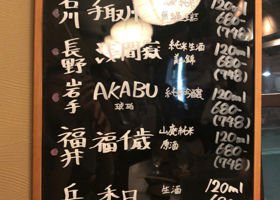 石川 手取川 120ml 680- (748)
長野 浅間嶽 純米生酒 120ml 680- (748)
岩手 AKABU 純米吟醸 120ml 680- (748)
福井 福千歳 山廃純米原酒 120ml 680- (748)
香住 生酒 120ml 680-